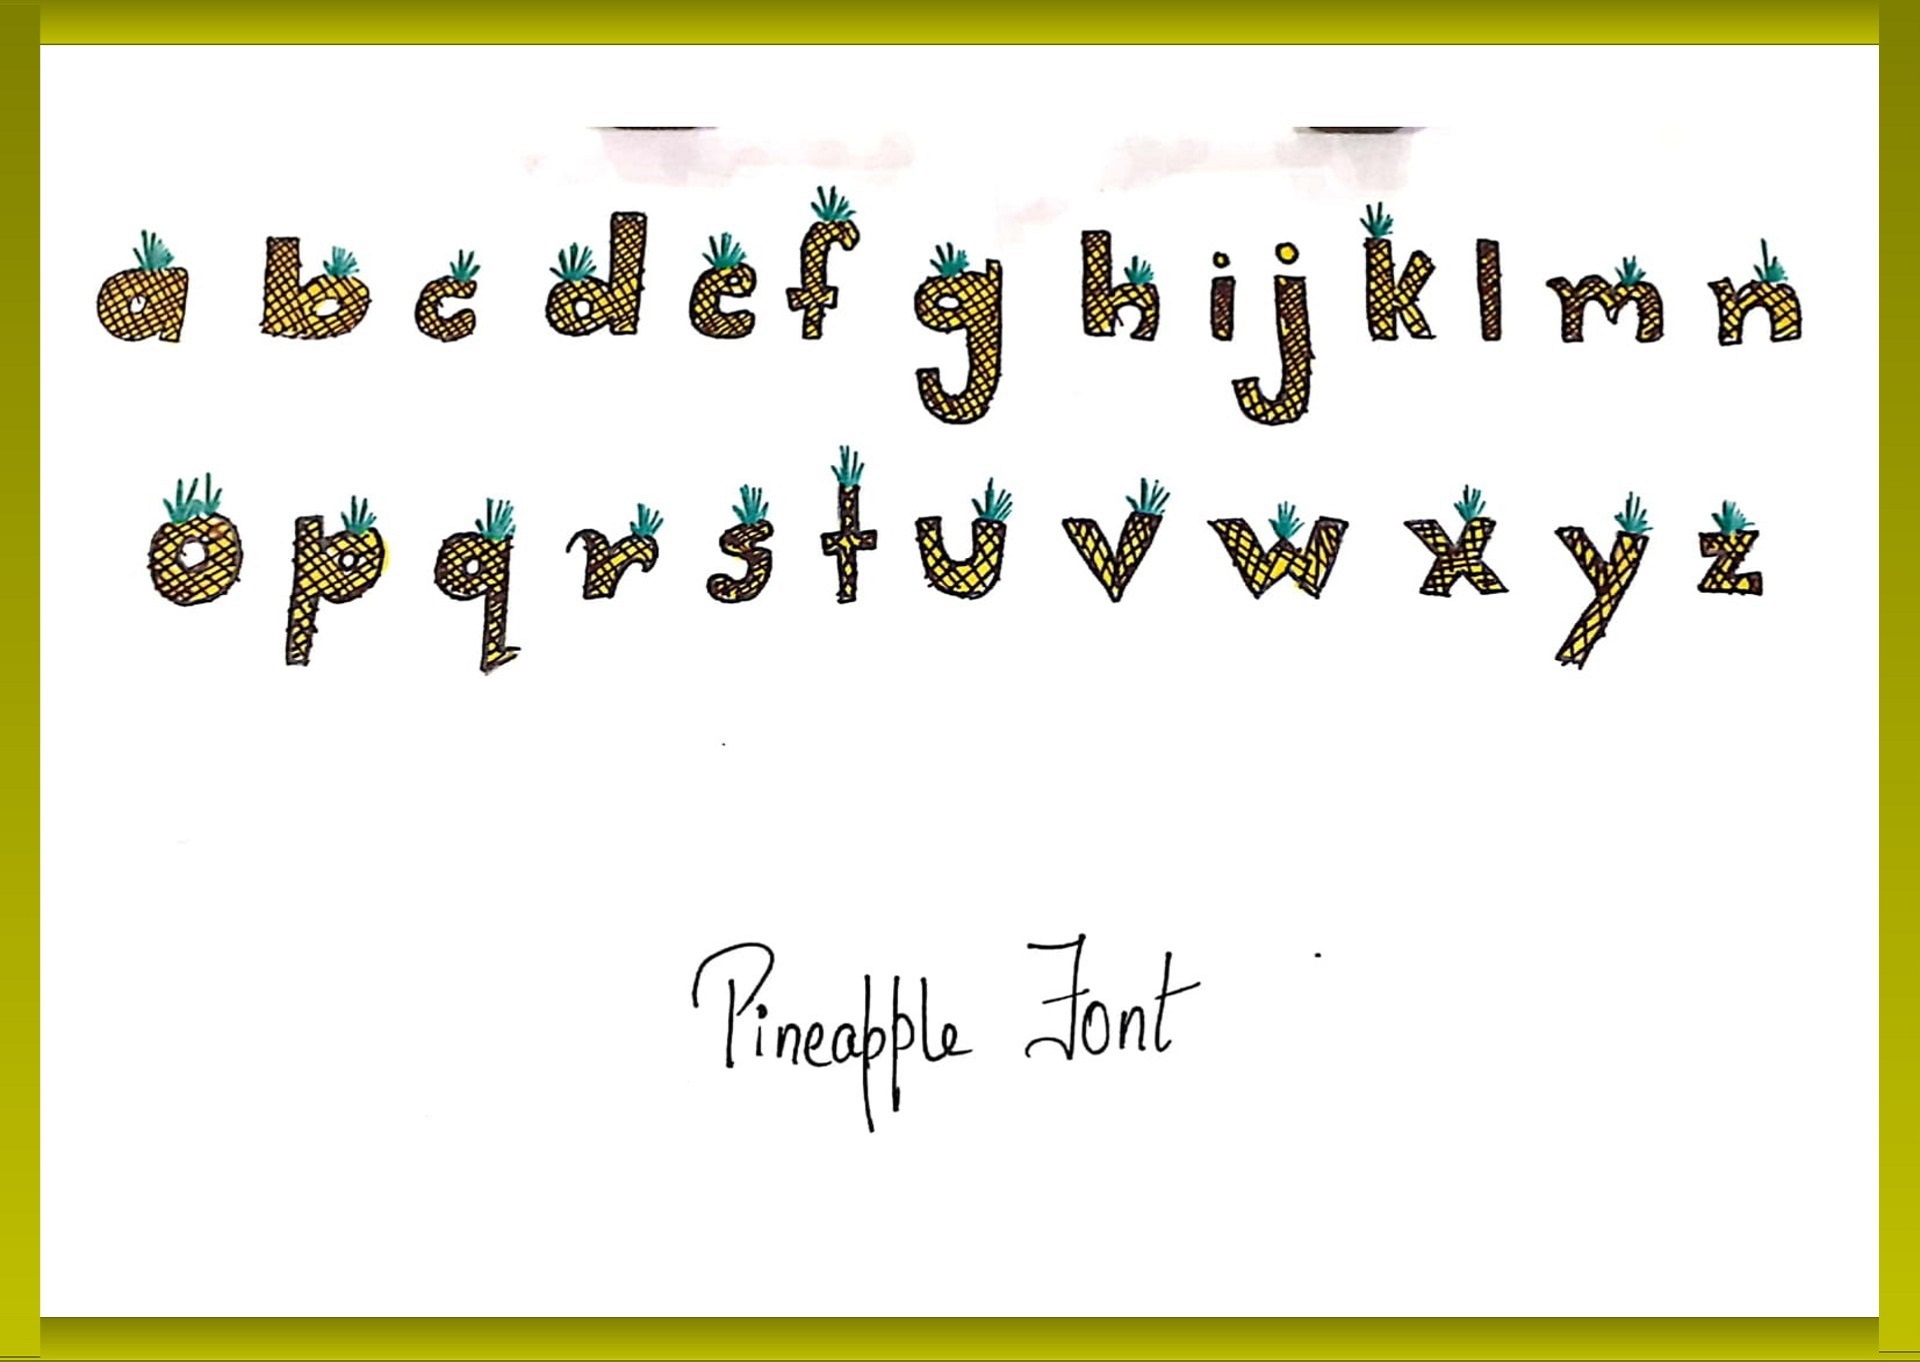 a b c d e f g h i j k l m n
o p q r s t u v w x y z
Pineapple Font